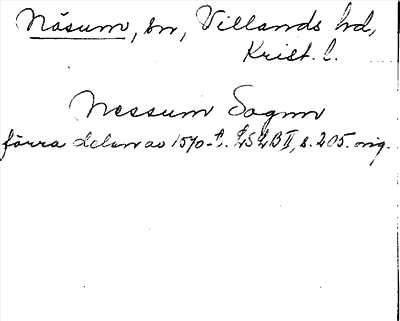 Näsum, sn, Villands hd,
Krist. l.
Nessum Sogn
förra delen av 1570-t. LSLB II, s. 205. orig.